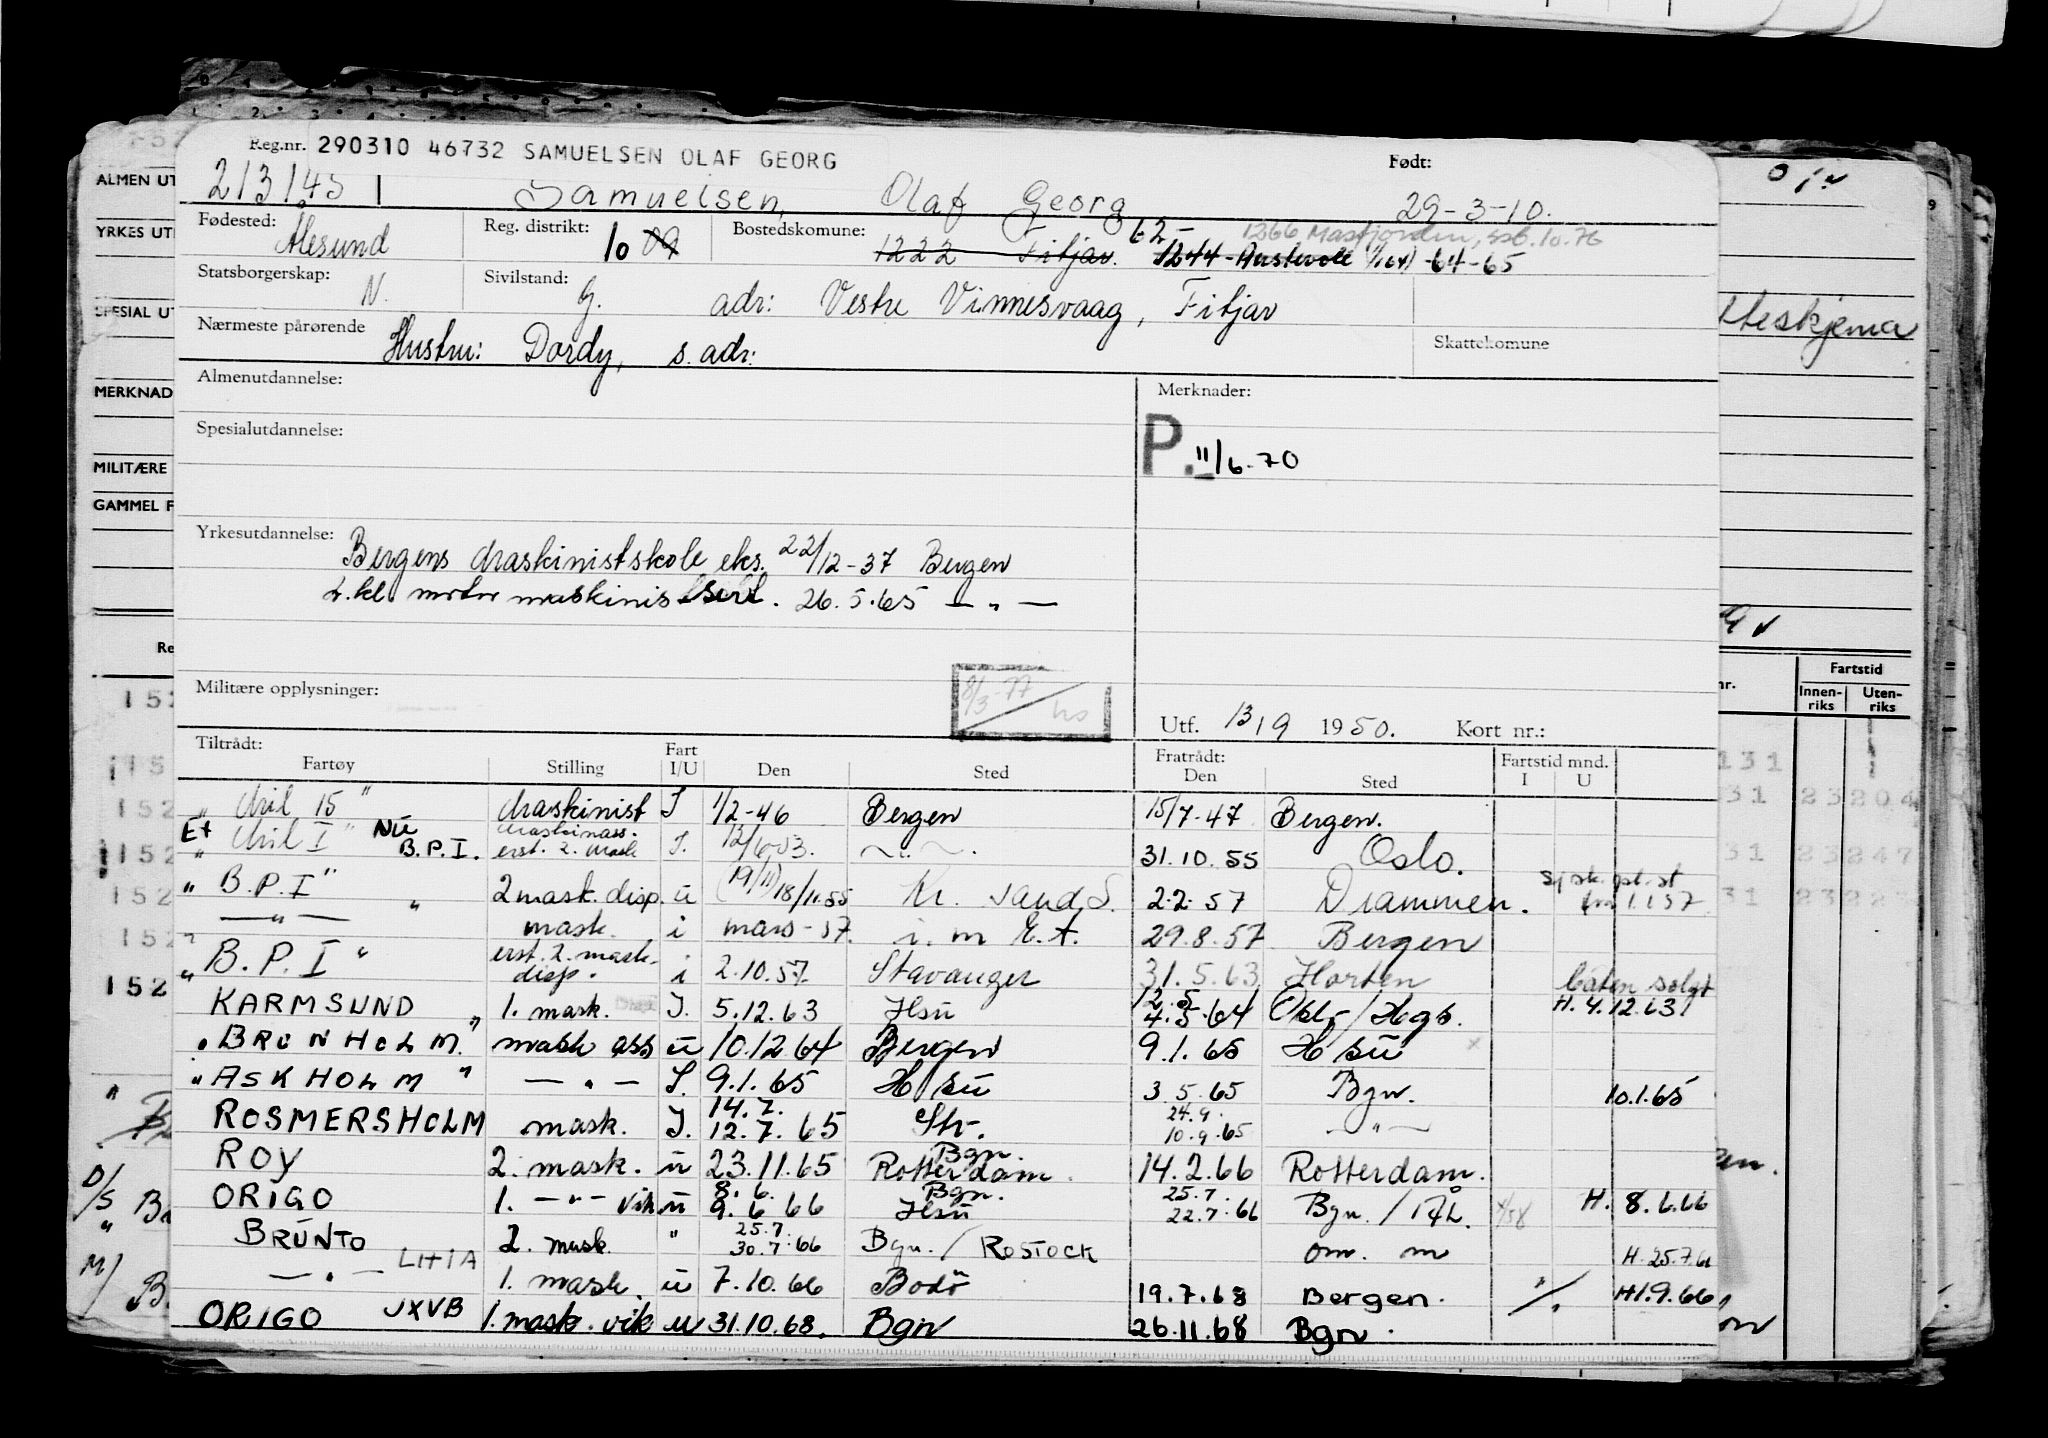 Reg.nr. 290310 46732 SAMUELSEN OLAF GEORG Født:
213145 Samuelsen, Olaf Georg 29-3-10.
Fødested: Ålesund Reg. distrikt: 10 09 Bostedskomune: 1222 Fitjar. 62- 1244-Austevoll -64-65
1266 Masfjorden, ssb. 10.76
Statsborgerskap: N. Sivilstand: G. adr: Vestre Vinnesvaag, Fitjar
Nærmeste pårørende Hustru: Dordy, s. adr: Skattekomune
Almenutdannelse: Merknader:
P. 11/6-70
Spesialutdannelse:
Yrkesutdannelse: Bergens Maskinistskole eks. 22/12-37 Bergen
2.kl. motor maskinist 26.5.65 — " —
Militære opplysninger: 8/3-77
Utf. 13/9 1950. Kort nr.:
Tiltrådt: Fartøy Stilling Fart I/U Den Sted Fratrådt: Den Sted Fartstid mnd. I U
" Mil 15 " Maskinist I 1/2-46 Bergen 15/7-47 Bergen.
" Mil I " Nu B.P.I. Maskinass. erst. 2. mask I. — " — 31.10.55 Oslo.
" B.P.I " 2 mask. disp. u (19/11) 18/11.55 Kr. sand S. 2.2.57 Drammen.
— " — mask. i mars-57. i. m 29.8.57 Bergen
" B.P.I " erst. 2. mask. disp. i 2.10.57. Stavanger 31.5.63 Horten båten solgt
KARMSUND 1. mask. I. 5.12.63 Hsu 12.5 4.5.64 Oslo/Hgs. H.4.12.63
" BRUNHOLM " mask ass u 10.12.64 Bergen 9.1.65 Hsu
" ASKHOLM " — " — I. 9.1.65 Hsu 3.5.65 Bgn. 10.1.65
ROSMERSHOLM mask. I. 14.7. 12.7.65 Str. 24.9. 10.9.65 — " —
ROY 2. mask. u 23.11.65 Bgn. Rotterdam. 14.2.66 Rotterdam.
ORIGO 1. — " — vik u 8.6. 9.6.66 Bgn. Hsu 25.7. 22.7.66 Bgn. H. 8.6.66
BRUNTO 2. mask. " 25.7. 30.7.66 Bgn. / ROSTOCK om. m H.25.7.66
— " — LHIA 1. mask. u 7.10.66 Bodö 19.7.68 Bergen. H1.9.66
ORIGO JXVB 1.mask. vik u 31.10.68. Bgn 26.11.68 Bgn.
ALMEN UT
YRKES UT
SPESIAL UT
MERKNAD
MILITÆRE
GAMMEL F
Fartstid
Innen-riks Uten-riks